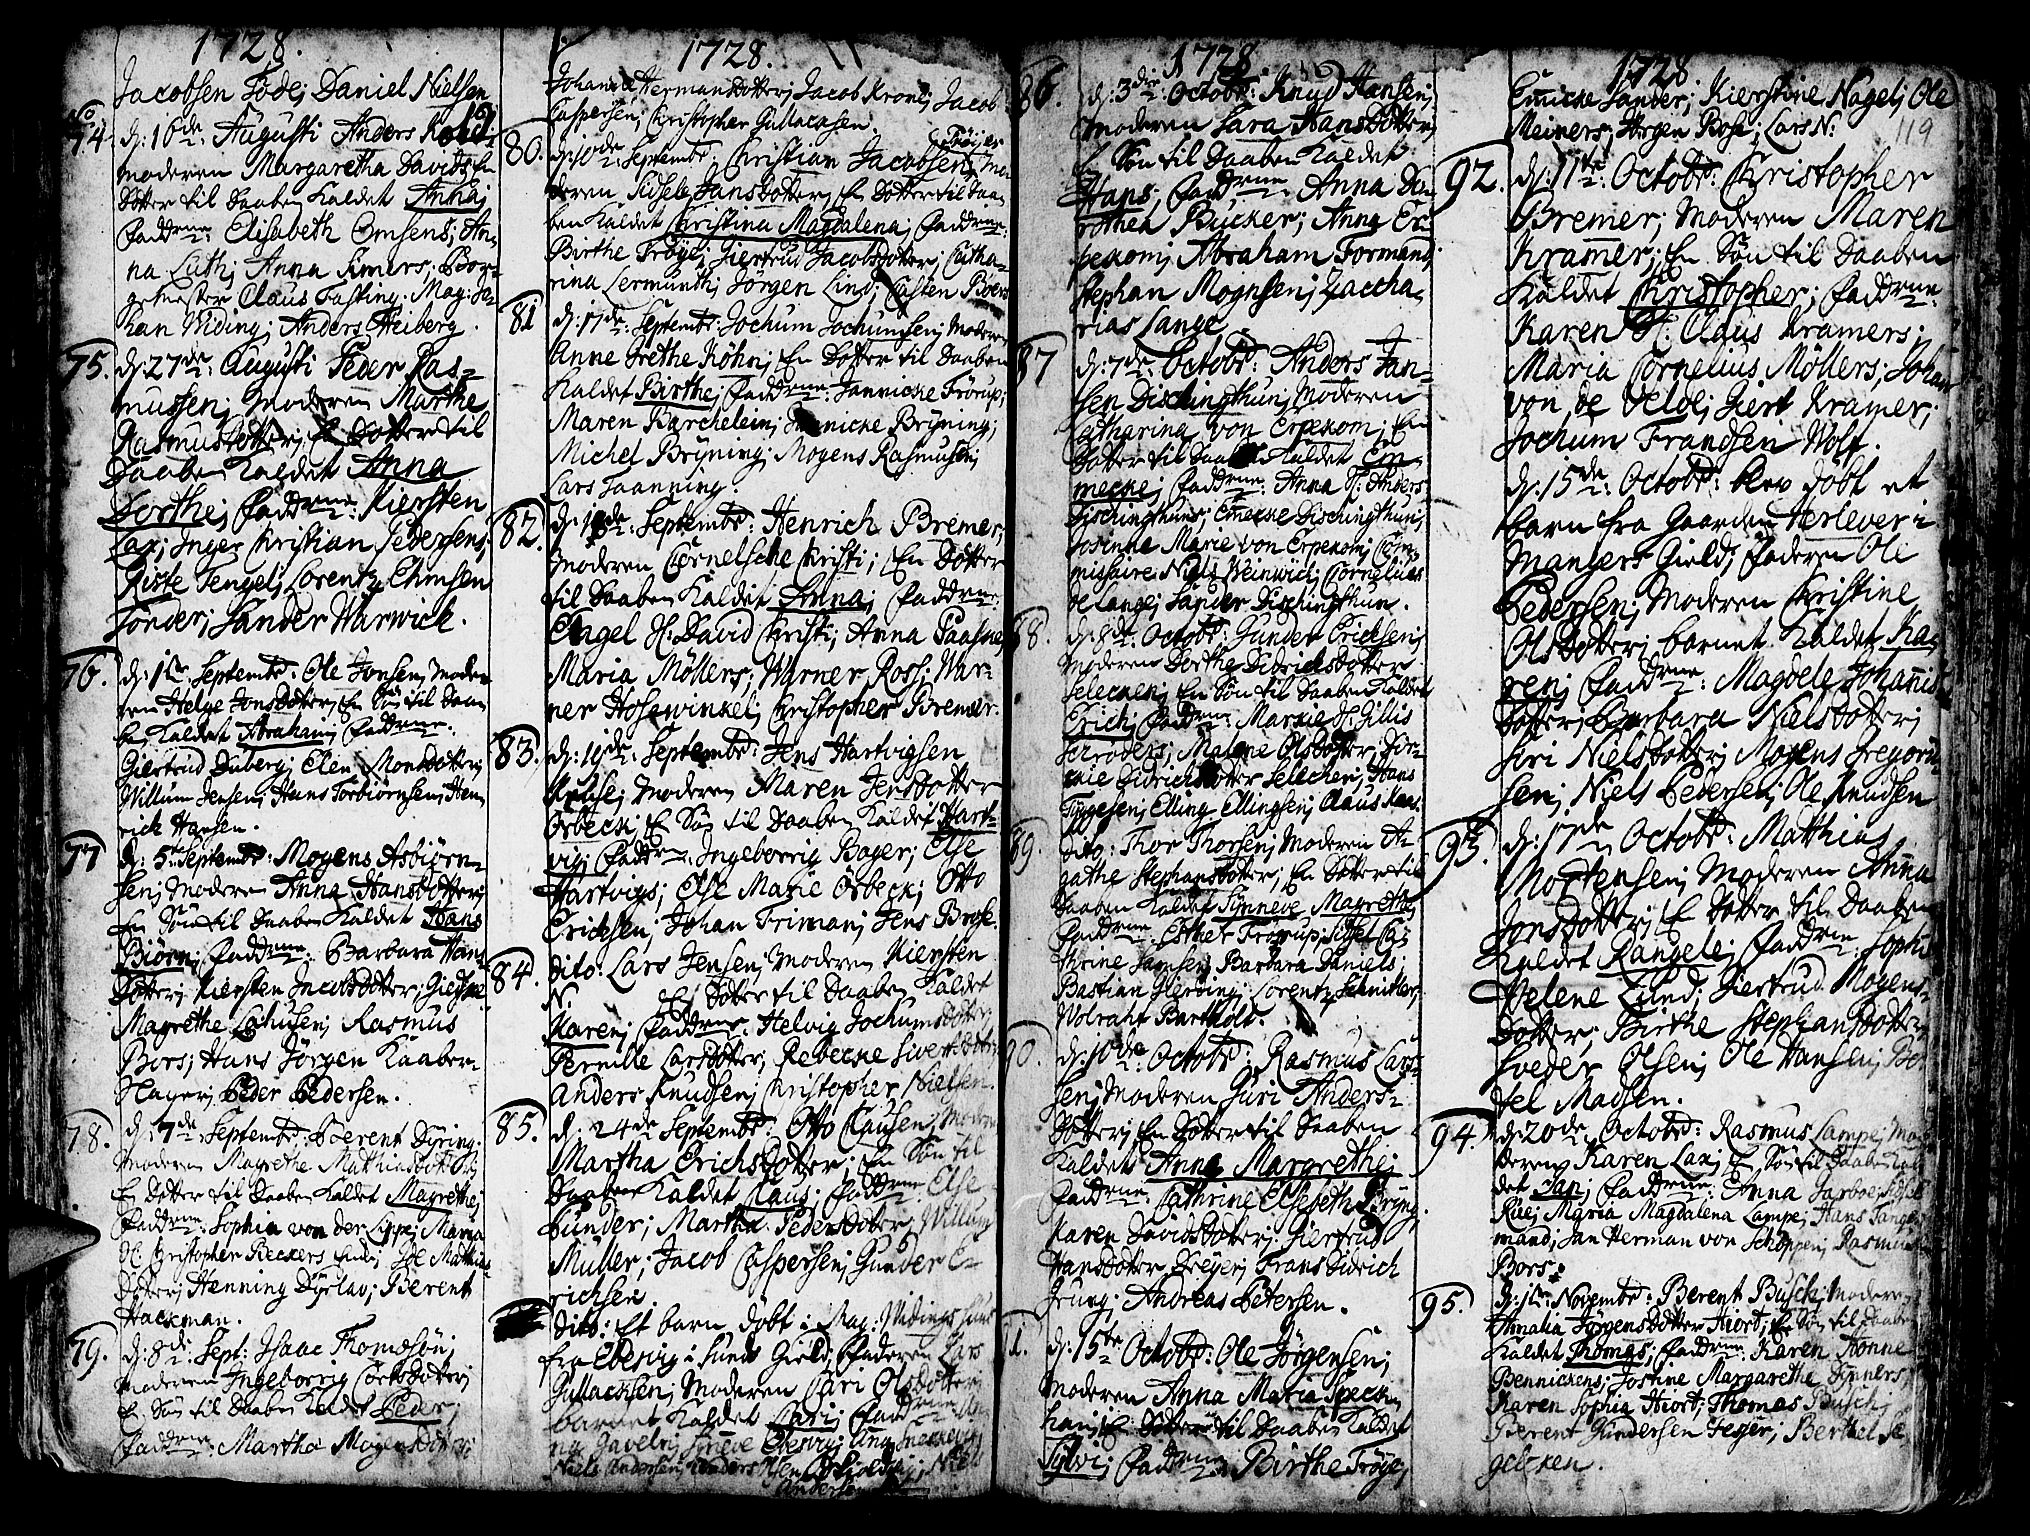 1728.
Jacobsen Fode; Daniel Nielsen
No
74. d: 16de: Augusti Anders
moderen Margaretha Davids; En
Dotter til Daaben Kaldet Anna;
Faddrene: Elisabeth Omsens; An-
na Luth; Anna Simers; Bor-
gemester Claus Fasting: Mag: Jo-
han Widing; Anders Heiberg.
75. d: 27de: Augusti Peder Ras-
mussen; Moderen Marthe
Rasmusdotter; En Dotter til
Daaben Kaldet Anna
Dorthe; Faddrene: Kiersten
Lax; Inger Christian Pedersens;
Kiste Tengel; Lorentz
Tonder; Sander Warwick.
76. d: 1te: Septembr: Ole Jonsen; Mode-
ren Helge Jonsdotter; En Søn til Daa-
ben Kaldet Abraham; Faddrene:
Giertrud Duberg; Elen Monsdotter;
Willum Jensen; Hans Torbiørnsen; Hen-
rich Hansen.
77. d: 5te Septembr: Mogens Asbiørn-
sen; Moderen Anna Hansdotter;
En Søn til Daaben Kaldet Hans
Biørn; Faddrene: Barbara Hans
Dotter; Kiersten Jacobsdotter;
Magrethe Rasmus
Bors; Hans Jörgen Kaaben-
Hager; Peder Pedersen.
78. d: 7de: Septembr: Berent Dyring.
Moderen Magrethe Mathiasdotter
En Dotter til Daaben Kaldet Magrethe;
Faddrene: Sophia von der Lippe; Maria
H: Christopher
Dotter; Henning Dyrlav; Berent
Hackman.
79. d: 8de: Sept: Isaac Thomesøn;
Moderen Ingeborrig
En Søn til Daaben Kaldet Peder;
Faddrene: Martha Mogensdotter;
1728.
Johanne Hermansdotter; Jacob Krone; Jacob
Caspersen; Christopher Gullacksen.
80. d: 10de: Septembr: Christian Jacobsen; Mo-
deren Sidsele Jansdotter; En Dotter til Daa-
ben Kaldet Christina Magdalena; Faddrene:
Birthe Trøye; Giertrud Jacobsdotter; Catha-
rina Lermunth; Jørgen Lind; Casten
81 d: 17de: Septembr: Jochum Jochumsen; Moderen
Anne Grethe Köhn; En Dotter til Daaben
Kaldet Birthe; Faddrene: Jannicke Trörup;
Maren Barchelein; Jannicke Brÿning;
Michel Brÿning; Mogens Rasmusen;
Lars Taanning.
82. d: 18de: Septembr: Henrich Bremer;
Moderen Cornelsche Christi; En Dotter
til Daaben Kaldet Anna; Faddrene:
Engel H: David Christi; Anna Paasche
Maria Möllers; Warner Ross; War-
ner Hosewinkel; Christopher Bremer.
83. d: 19de: Septembr: Jens Hartvigsen
Kruse; Moderen Maren Jensdotter
Orbeck; En Søn til Daaben Kaldet Hart-
vig; Faddrene: Ingeborrig Bager; Else
Hartvigs; Else Marie Orbeck; Otto
Ericksen; Johan Friman; Jens Brose.
84. dito: Lars Jensen; Moderen Kiersten
N: En Dotter til Daaben Kaldet
Karen; Faddrene: Helvig Jochumsdotter;
Pernille Larsdotter; Rebecke Sivertsdotter
Anders Knudsen; Christopher Nielsen.
85. d: 24de Septembr: Otto Clausen; Moderen
Martha Erichsdotter; En Søn til
Daaben Kaldet Claus; Faddrene Else
Sunder; Martha Pedersdotter; Willum
Müller; Jacob Caspersen; Gunder E-
richsen
dito: Et barn døbt i Mag: Widings
fra Ebesvig i Sunds Gield; Faderen Lars
Gullacksen; Moderen Kari Olsdotter;
barnet Kaldet Kari; Faddrene

Niels Andersen; Niels
Andersen
1728.
86. d: 3die: Octobr: Knud Hansen;
Moderen Sara Hansdotter;
En Søn til Daaben Kaldet
Hans; Faddrene: Anna Do-
rothea Bücker; Anna Er-
pekom; Abraham Formand
Stephan Mognsen; Zaccha-
rias Lange
87 d: 7de: Octobr: Anders Jan-
sen Dischingthun; Moderen
Catharina von Erpekom; En
Dotter til Daaben Kaldet Em-
mecke; Faddrene: Anna H: Anders
Dischingthuns; Emecke Dischingthun;
Josinna Marie von Erpekom; Com-
missaire Niels Weinwich; Cornelius
de Lange; Sander Dischingthun.
88. d: 8de: Octobr: Gunder Ericksen;
Moderen Dorthe Didrichsdotter
Selecken; En Søn til Daaben Kaldet
Erich; Faddrene Marrie H: Gillis
Schrøders; Malene Olsdotter; Dor-
thie Didrichsdotter Selecken; Hans
Tyggesen; Elling Ellingsen; Claus Hans.
89. dito: Thor Thorsen; Moderen A-
gathe Stephansdotter; En Dotter til
Daaben Kaldet Synneve Magrethe;
Faddrene: Esther Trørup; Sidsel Ca-
thrine Samsen; Barbara Daniels;
Bastian Gierding; Lorentz Schnitler;
Wolraht Barthold.
90. d: 10de: Octobr: Rasmus Lars-
sen; Moderen Guri Anders-
Dotter; En Dotter til Daaben
Kaldet Anna Margrethe;
Faddrene: Cathrine Elsebeth Brÿng.
Karen Davidsdotter; Giertrud
Hansdotter Dreyer; Frans Didrich
Grung; Andreas Petersen.
91. d: 15de Octobr: Ole Jörgensen;
Moderen Anna Maria Speck-
han; En Dotter til Daaben Kaldet
Sylvi; Faddrene: Birthe Trøye;
1728
Emicke Sander; Kierstine Nagel; Ole
Meiners; Jörgen Rose; Lars N:
119
92. d: 11te: Octobr: Christopher
Bremer; Moderen Maren
Kramer; En Søn til Daaben
Kaldet Christopher; Faddrene:
Karen H: Claus Kramers;
Maria Cornelius Möllers; Johan
von de Velde; Giert Kramer;
Jochum Frandsen Wolf.
d: 15de: Octobr: blev døbt et
barn fra Gaarden Herlever i
Mangers Gield; Faderen Ole
Pedersen; Moderen Christine
Olsdotter; barnet Kaldet Ka-
ren; Faddrene: Magdele Johannis
Dotter; Barbara Nielsdotter;
Siri Nielsdotter; Mogens Gregoriu-
sen; Niels Pedersen; Ole Knudsen
93. d: 17de Octobr: Matthias
Mortensen; Moderen Anna
Jonsdotter; En Dotter til Daaben
Kaldet Rangele; Faddrene: Sophia
Helene Lund; Giertrud Mogens-
Dotter; Birthe Stephansdotter
Sveder Olsen; Ole Hansen; Bor-
tel Madsen.
94. d: 20de Octobr: Rasmus Lampe; Mo-
deren Karen Lax; En Søn til Daaben Kal-
det Jan; Faddrene: Anna Jarboe;
Rüe; Maria Magdalena Lampe; Hans Tange-
mand; Jan Herman von Schöppen; Rasmus
Bors.
95. d: 1te: Novembr: Berent Busch; Moderen
Amalia Jørgensdotter Hiort; En Søn til Daaben
Kaldet Thomas; Faddrene: Karen Honne
Bennickens; Jostine Margarethe Tynners,
Karen Sophia Hiort; Thomas Busch;
Berent Gundersen Jeger; Berthel Se-
gelcken.